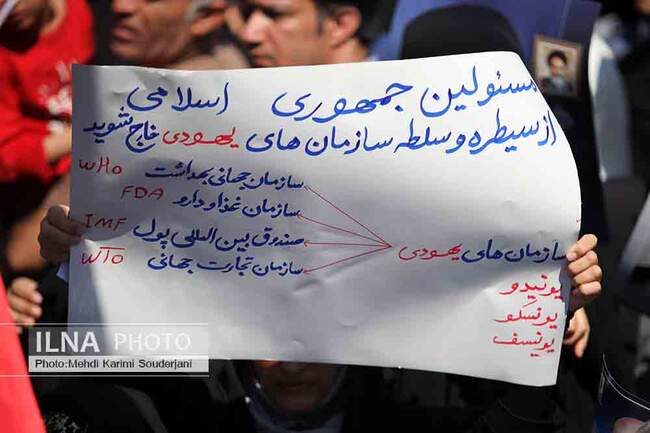 مسئولین جمهوری اسلامی
از سیطره و سلطه سازمان های یهودی خاج شوید
سازمان جهانی بهداشت WHO
سازمان غذا و دارو FDA
صندوق بین المللی پول IMF
سازمان تجارت جهانی WTO
سازمان های یهودی
یونیدو
یونسکو
یونیسف
ILNA PHOTO
Photo:Mehdi Karimi Souderjani